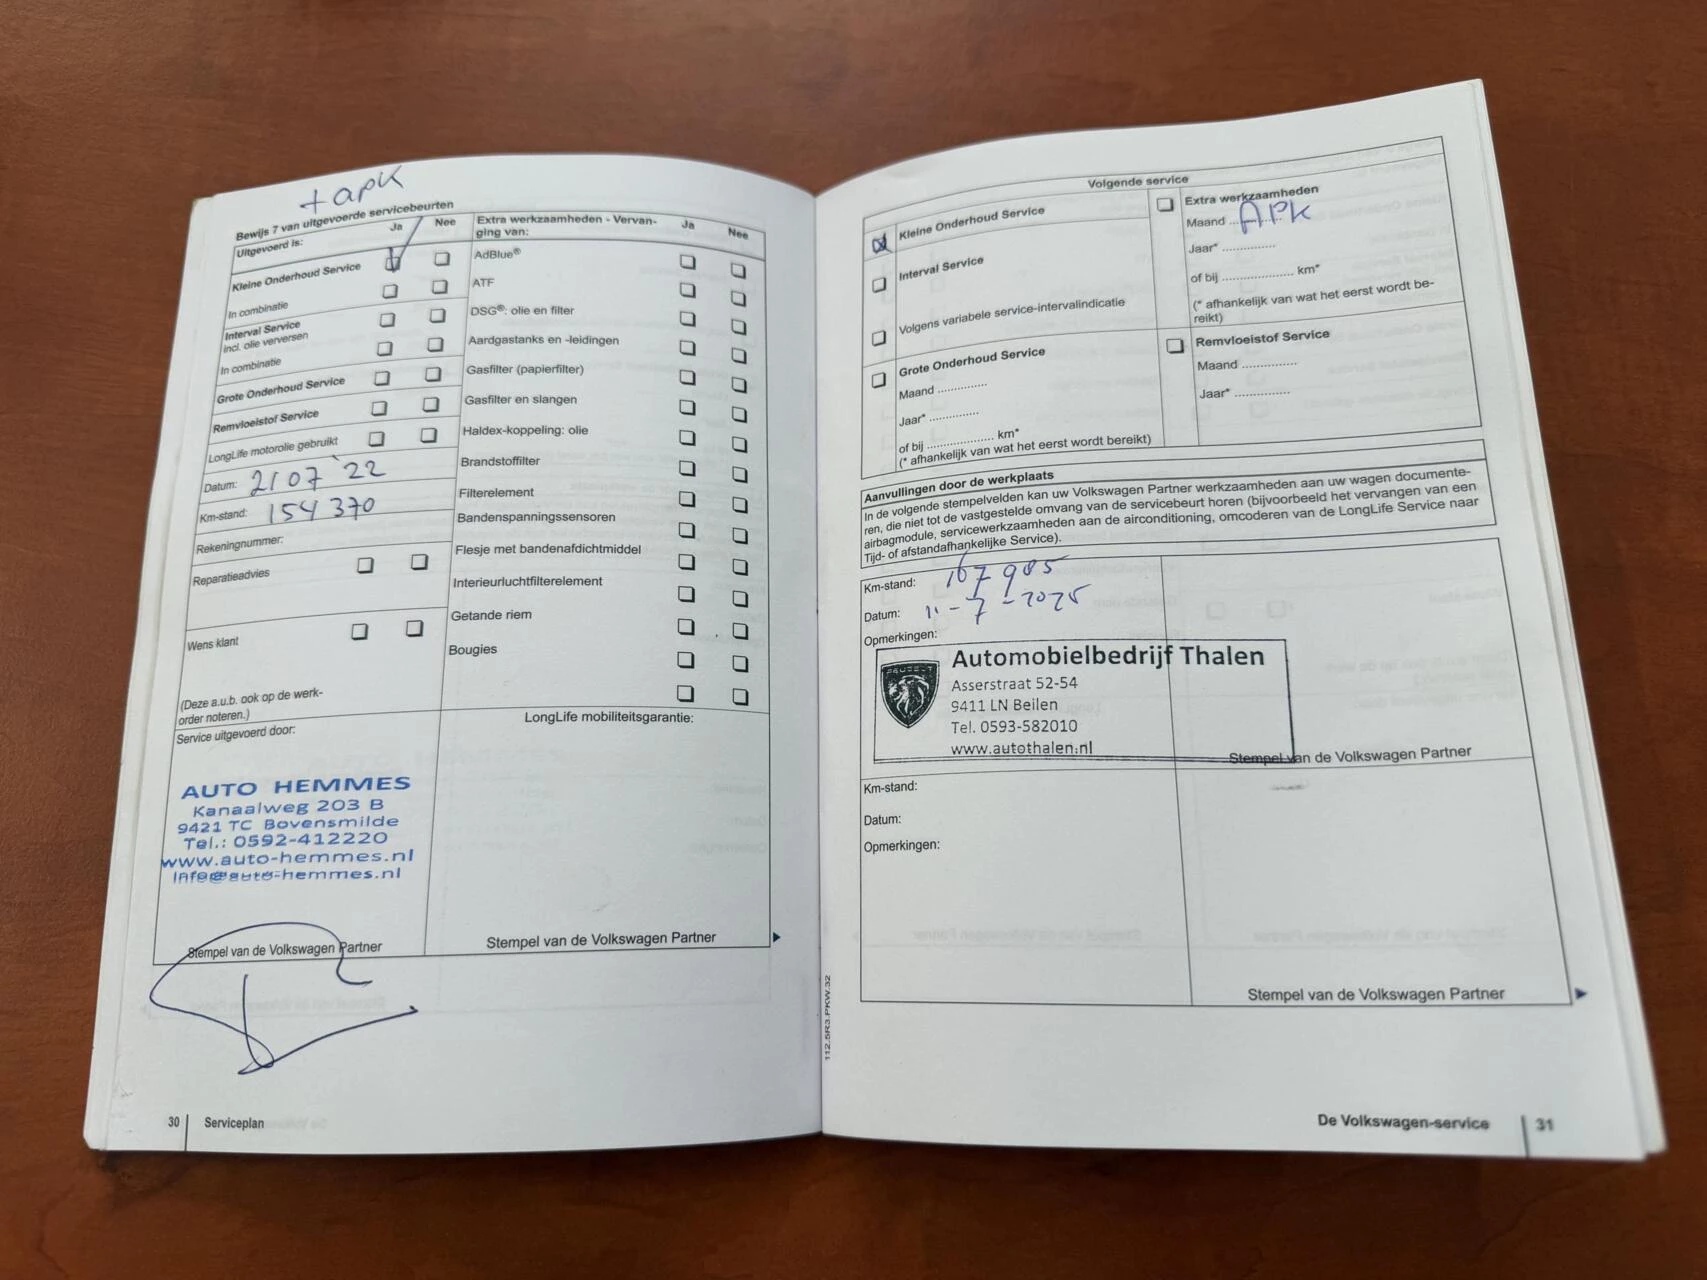 + APK
Bewijs 7 van uitgevoerde servicebeurten
Uitgevoerd is:
Ja
Nee
Kleine Onderhoud Service
In combinatie
Interval Service
incl. olie verversen
In combinatie
Grote Onderhoud Service
Remvloeistof Service
LongLife motorolie gebruikt
Datum: 21 07 '22
Km-stand: 154 370
Rekeningnummer:
Reparatieadvies
Wens klant
(Deze a.u.b. ook op de werk-
order noteren.)
Extra werkzaamheden - Vervan-
ging van:
Ja
Nee
AdBlue®
ATF
DSG®: olie en filter
Aardgastanks en -leidingen
Gasfilter (papierfilter)
Gasfilter en slangen
Haldex-koppeling: olie
Brandstoffilter
Filterelement
Bandenspanningssensoren
Flesje met bandenafdichtmiddel
Interieurluchtfilterelement
Getande riem
Bougies
Service uitgevoerd door:
AUTO HEMMES
Kanaalweg 203 B
9421 TC Bovensmilde
Tel.: 0592-412220
www.auto-hemmes.nl
info@auto-hemmes.nl
Stempel van de Volkswagen Partner
LongLife mobiliteitsgarantie:
Stempel van de Volkswagen Partner
30 Serviceplan
Volgende service
Kleine Onderhoud Service
Interval Service
Volgens variabele service-intervalindicatie
Grote Onderhoud Service
Maand ..............
Jaar* ..............
of bij ................... km*
(* afhankelijk van wat het eerst wordt bereikt)
Extra werkzaamheden
Maand .............. APK
Jaar* ...............
of bij .................... km*
(* afhankelijk van wat het eerst wordt be-
reikt)
Remvloeistof Service
Maand ...............
Jaar* ...............
Aanvullingen door de werkplaats
In de volgende stempelvelden kan uw Volkswagen Partner werkzaamheden aan uw wagen documente-
ren, die niet tot de vastgestelde omvang van de servicebeurt horen (bijvoorbeeld het vervangen van een
airbagmodule, servicewerkzaamheden aan de airconditioning, omcoderen van de LongLife Service naar
Tijd- of afstandafhankelijke Service).
Km-stand: 167 985
Datum: 11-7-2025
Opmerkingen:
PEUGEOT
Automobielbedrijf Thalen
Asserstraat 52-54
9411 LN Beilen
Tel. 0593-582010
www.autothalen.nl
Stempel van de Volkswagen Partner
Km-stand:
Datum:
Opmerkingen:
Stempel van de Volkswagen Partner
112.5R3.PKW.32
De Volkswagen-service 31